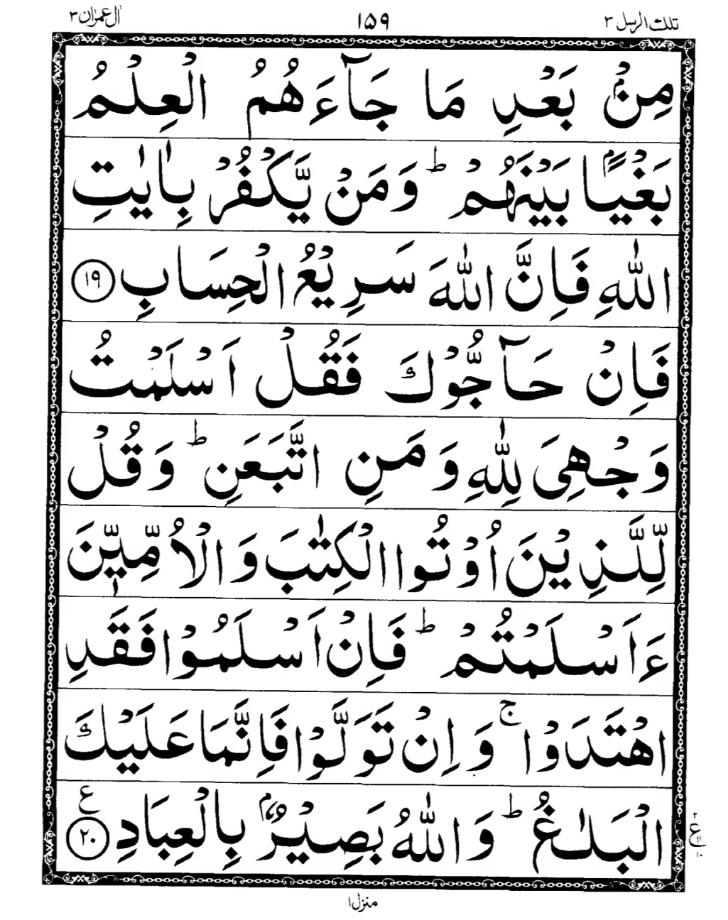 تلك الرسل ٣ ١۵٩ اٰل عمرٰن ٣
مِنْۢ بَعْدِ مَا جَآءَهُمُ الْعِلْمُ
بَغْيًاۢ بَيْنَهُمْ ؕ وَمَنْ يَّكْفُرْ بِاٰيٰتِ
اللّٰهِ فَاِنَّ اللّٰهَ سَرِيْعُ الْحِسَابِ ﴿١٩﴾
فَاِنْ حَآجُّوْكَ فَقُلْ اَسْلَمْتُ
وَجْهِىَ لِلّٰهِ وَمَنِ اتَّبَعَنِ ؕ وَقُلْ
لِّلَّذِيْنَ اُوْتُوا الْكِتٰبَ وَالْاُمِّيّٖنَ
ءَاَسْلَمْتُمْ ؕ فَاِنْ اَسْلَمُوْا فَقَدِ
اهْتَدَوْا ۚ وَاِنْ تَوَلَّوْا فَاِنَّمَا عَلَيْكَ
الْبَلٰغُ ؕ وَاللّٰهُ بَصِيْرٌۢ بِالْعِبَادِ ﴿٢٠﴾ ع
٢ ع ١١ ١٠
منزل ١